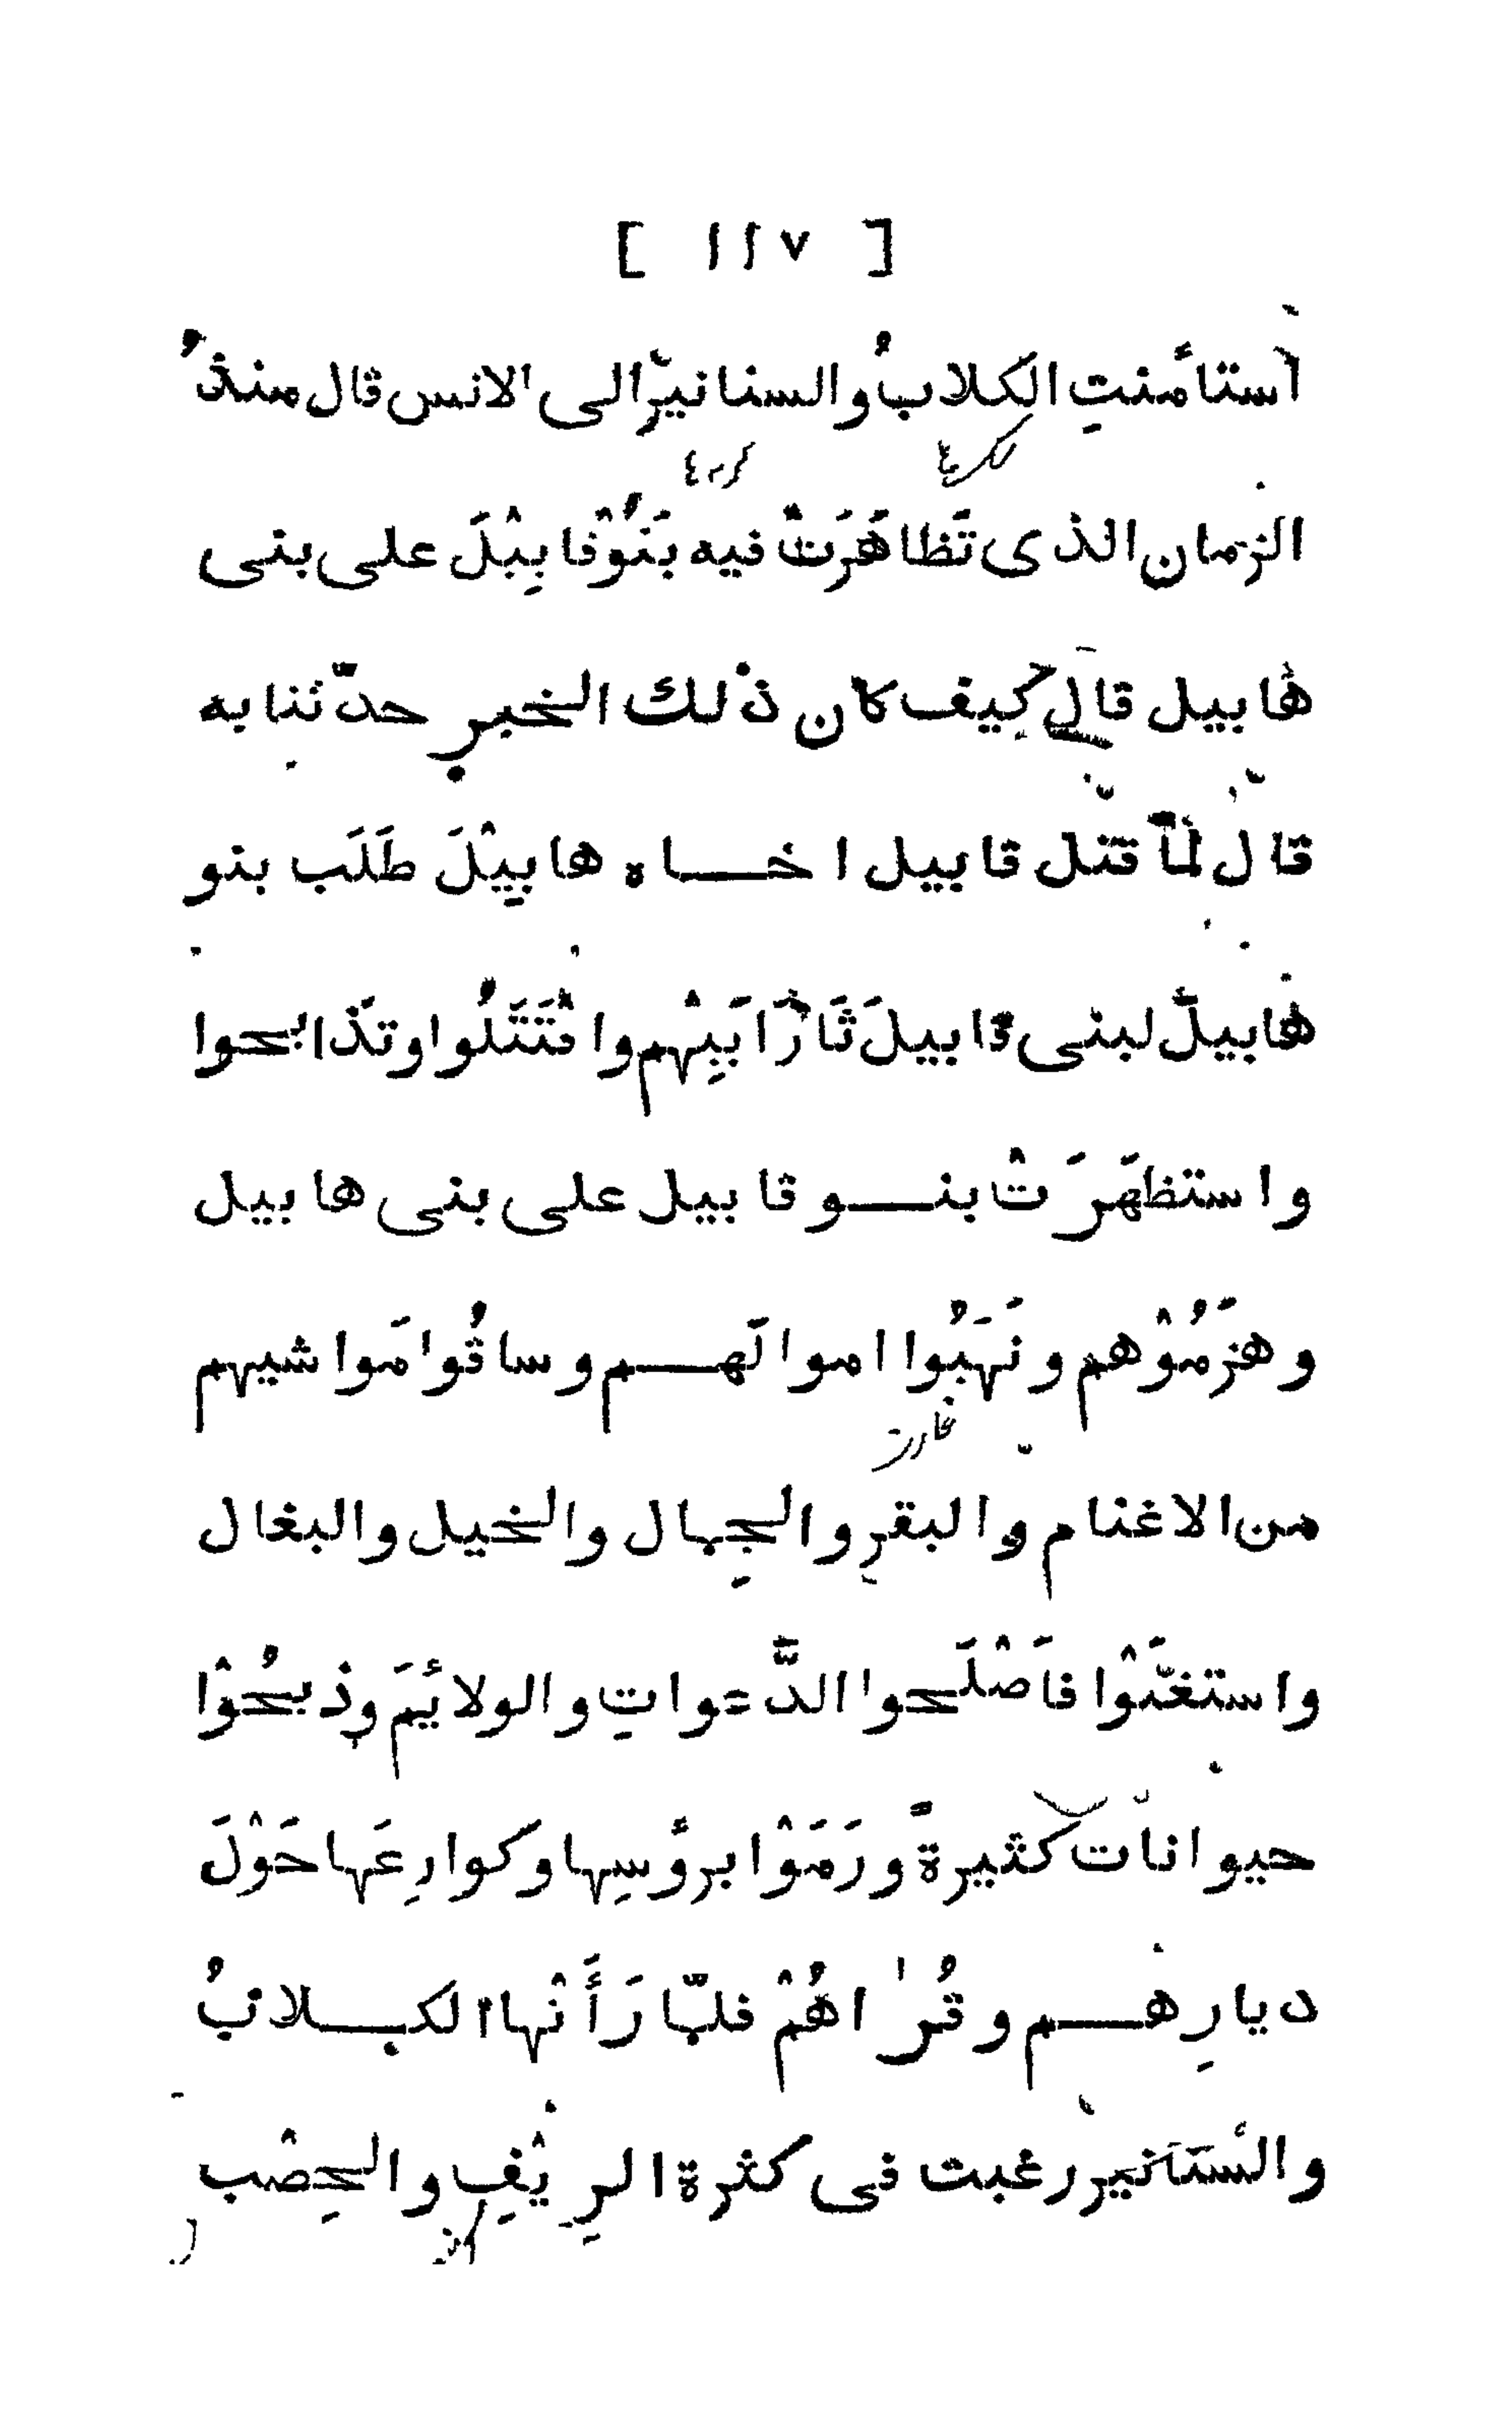 [ ١١٧ ]
استأمنتِ الكلابُ والسنانيرُ الى الانس قال منذُ
الزمان الذى تَظاهَرَتْ فيه بَنُوْقابِيْلَ على بنى
هابيل قال كيف كان ذلك الخبر حدّثنا به
قال لمّا قتل قابيل اخـــاه هابِيْلَ طَلَب بنو
هابيلَ لبنى قابيلَ ثَارَ اَبِيْهم واقْتَتَلُوا وتَذابحوا
واستظهَرَتْ بنـــو قابيل على بنى هابيل
وهَزَمُوْهم ونَهَبُوا اموالَهـــم وساقُوا مَواشيهم
من الاغنام والبقر والجِمال والخيل والبغال
واستغنَوْا فاَصْلَحوا الدَّعواتِ والولائمَ وذبحُوْا
حيوانات كثيرةً ورَمَوْا برؤسِها وكوارِعَها حَوْلَ
ديارِهـــم وقُراهُمْ فلمّا رَأَتْها الكـــلابُ
والسَّنانير رغبت فى كثرة الرِيْفِ والخِصْب